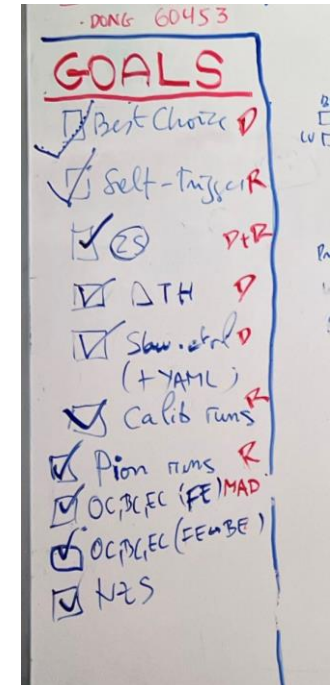 DONG 60453
GOALS
Best Choice D
Self-Trigger R
ZS D+R
ΔTH D
Slow.ctrl D
(+ YAML)
Calib runs R
Pion runs R
OC,BC,EC (FE) MAD
OC,BC,EC (FE↔BE)
NZS